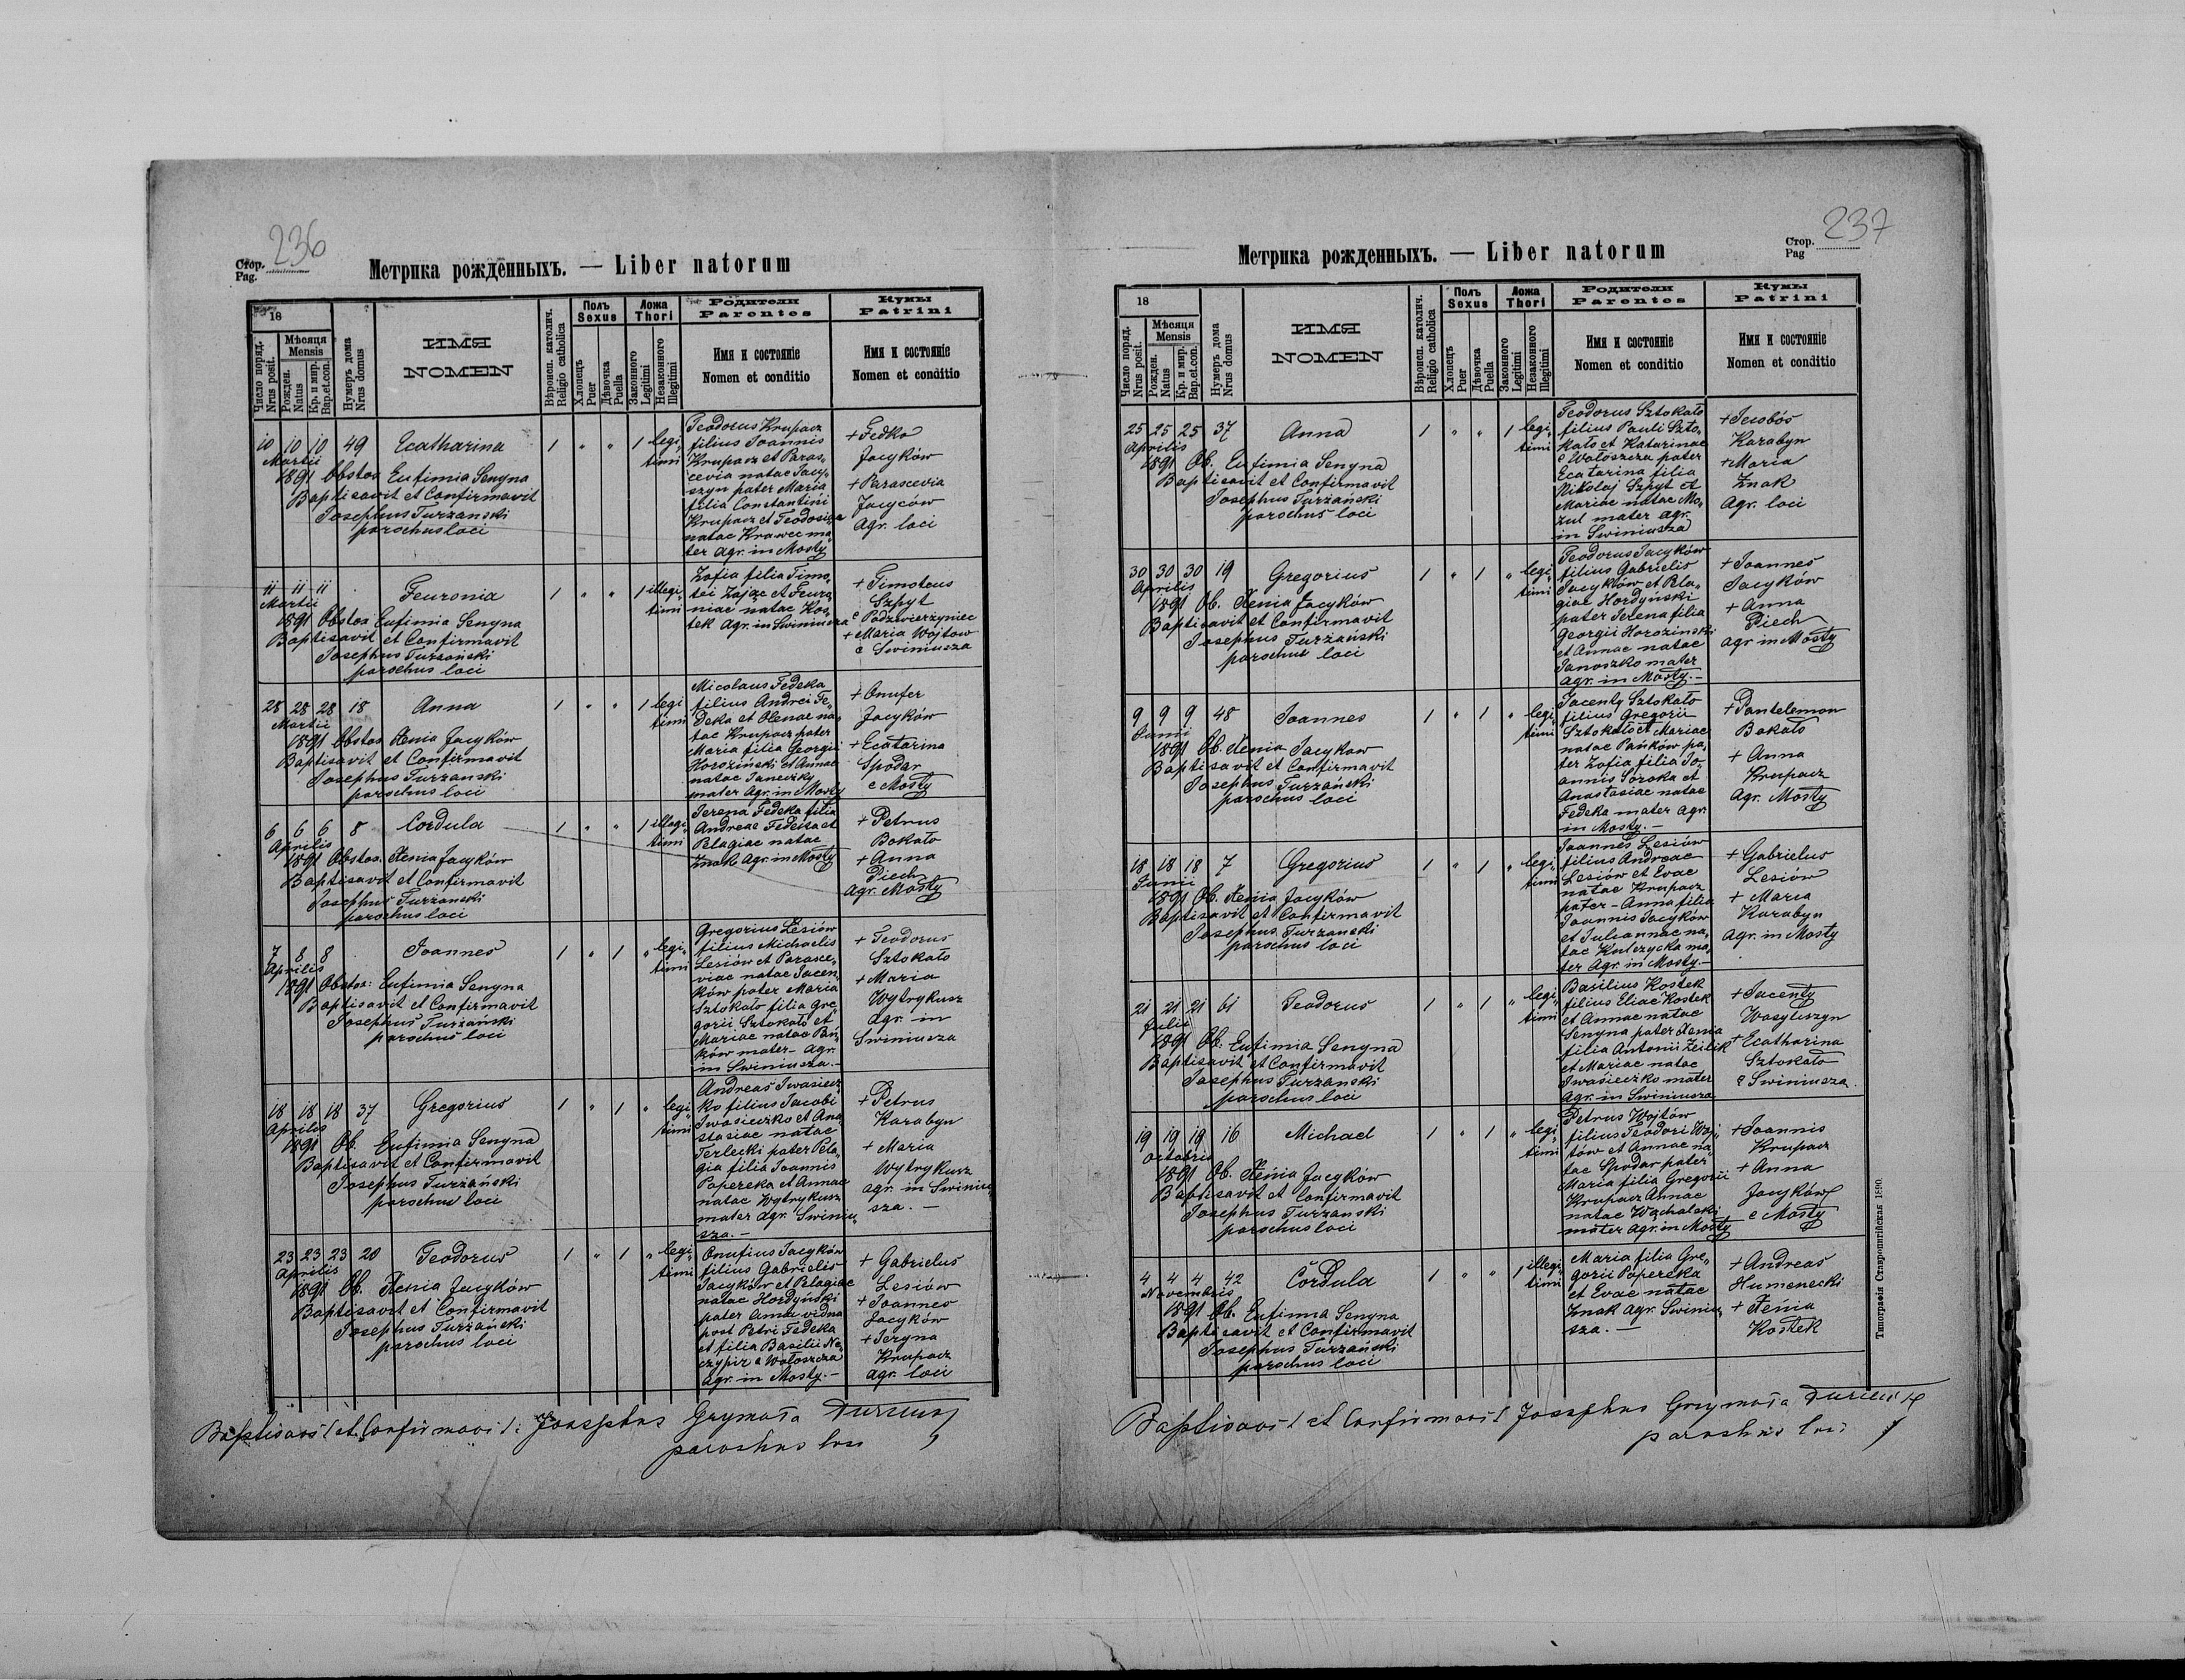 236
Стор.
Pag.
Метрика рожденныхъ. — Liber natorum
18
Число поряд.
Nrus posit.
Мѣсяця
Mensis
Рожден.
Natus
Кр. и мир.
Bap.et.con.
Нумеръ дома
Nrus domus
ИМЯ
NOMEN
Вѣроисп. католич.
Religio catholica
Полъ
Sexus
Хлопецъ
Puer
Дѣвочка
Puella
Ложа
Thori
Законного
Legitimi
Незаконного
Illegitimi
Родители
Parentes
Имя и состояніе
Nomen et conditio
Кумы
Patrini
Имя и состояніе
Nomen et conditio
10 10 10 49 Ecatharina 1 " " 1 legi-
timi
Martii
1891 Obstes Eufimia Senyna
Baptisavit et Confirmavit
Josephus Turzanski
parochus loci
Teodorus Krupacz
filius Joannis
Krupacz et Paras-
cevia natae Jacy-
szyn pater Maria
filia Constantini
Krupacz et Teodosiae
natae Krawec ma-
ter agr. in Mosty
+ Fedko
Jacyków
+ Parascevia
Jacyców
Agr. loci
11 11 11 Feuronia 1 " " 1 illegi-
timi
Martii
1891 Obstes Eufimia Senyna
Baptisavit et Confirmavit
Josephus Turzański
parochus loci
Zofia filia Timo-
tei Zając et Feuro-
niae natae Kos-
tek Agr. in Swiniusza
+ Timoteus
Szpyt
e Podzwierzyniec
+ Maria Wojtow
e Swiniusza
28 28 28 18 Anna 1 " " 1 legi-
timi
Martii
1891 Obstes Xenia Jacyków
Baptisavit et Confirmavit
Josephus Turzanski
parochus loci
Micolaus Fedeka
filius Andrei Fe-
deka et Olenae na-
tae Krupacz pater
Maria filia Georgii
Horoziński et Annae
natae Janeczky
mater Agr. in Mosty
+ Onufer
Jacyków
+ Ecatarina
Spodar
e Mosty
6 6 6 8 Cordula 1 " " 1 illegi-
timi
Aprilis
1891 Obstes. Xenia Jacyków
Baptisavit et Confirmavit
Josephus Turzanski
parochus loci
Jerena Fedeka filia
Andreae Fedeka et
Pelagiae natae
Znak Agr. in Mosty
+ Petrus
Bokało
+ Anna
Piech
Agr. Mosty
7 8 8 Joannes 1 " 1 " legi-
timi
Aprilis
1891 Obstes: Eufimia Senyna
Baptisavit et Confirmavit
Josephus Turzański
parochus loci
Gregorius Lesiów
filius Michaelis
Lesiów et Parasce-
viae natae Jacen-
ków pater Maria
Sztokało filia Gre-
gorii Sztokało et
Mariae natae Pań-
ków mater - Agr.
in Swiniusza. -
+ Teodorus
Sztokało
+ Maria
Wytrykusz
Agr. in
Swiniusza
18 18 18 37 Gregorius 1 " 1 " legi-
timi
Aprilis
1891 Ob. Eufimia Senyna
Baptisavit et Confirmavit
Josephus Turzański
parochus loci
Andreas Iwasiecz-
ko filius Jacobi
Iwasieczko et Ana-
stasiae natae
Terlecki pater Pela-
gia filia Joannis
Popereka et Annae
natae Wytrykusz
mater Agr. Swiniu-
sza. -
+ Petrus
Karabyn
+ Maria
Wytrykusz
agr. in Swiniu-
sza. -
23 23 23 20 Teodorus 1 " 1 " legi-
timi
Aprilis
1891 Ob. Xenia Jacyków
Baptisavit et Confirmavit
Josephus Turzański
parochus loci
Onufius Jacyków
filius Gabrielis
Jacyków et Pelagiae
natae Hordyński
pater Anna vidua
post Petri Fedeka
et filia Basilii Ne-
czypir e Wołoszcza
Agr. in Mosty. -
+ Gabrielus
Lesiów
+ Joannes
Jacyków
+ Jeryna
Krupacz
agr. loci
Baptisavit et Confirmavit: Josephus Grymała
parochus loci
237
Стор.
Pag
Метрика рожденныхъ. — Liber natorum
18
Число поряд.
Nrus posit.
Мѣсяця
Mensis
Рожден.
Natus
Кр. и мир.
Bap.et.con.
Нумеръ дома
Nrus domus
ИМЯ
NOMEN
Вѣроисп. католич.
Religio catholica
Полъ
Sexus
Хлопецъ
Puer
Дѣвочка
Puella
Ложа
Thori
Законного
Legitimi
Незаконного
Illegitimi
Родители
Parentes
Имя и состояніе
Nomen et conditio
Кумы
Patrini
Имя и состояніе
Nomen et conditio
25 25 25 37 Anna 1 " " 1 legi-
timi
Aprilis
1891 Ob. Eufimia Senyna
Baptisavit et Confirmavit
Josephus Turzański
parochus loci
Teodorus Sztokało
filius Pauli Szto-
kało et Katarinae
e Wołoszcza pater
Ecatarina filia
Nikolaj Szpyt et
Mariae natae Mo-
zul mater agr.
in Swiniusza
+ Jacobós
Karabyn
+ Maria
Znak
Agr. loci
30 30 30 19 Gregorius 1 " 1 " legi-
timi
Aprilis
1891 Ob. Xenia Jacyków
Baptisavit et Confirmavit
Josephus Turzański
parochus loci
Teodorus Jacyków
filius Gabrielis
Jacyków et Pela-
giae Hordyński
pater Jerena filia
Georgii Horozinski
et Annae natae
Janoszko mater
Agr. in Mosty. -
+ Joannes
Jacyków
+ Anna
Piech
agr in Mosty
9 9 9 48 Joannes 1 " 1 " legi-
timi
Junii
1891 Ob. Xenia Jacykow
Baptisavit et Confirmavit
Josephus Turzański
parochus loci
Jacenty Sztokało
filius Gregorii
Sztokało et Mariae
natae Pańków pa-
ter Zofia filia Jo-
annis Soroka et
Anastasiae natae
Fedeka mater Agr.
in Mosty. -
+ Pantelemon
Bokało
+ Anna
Krupacz
Agr. Mosty
18 18 18 7 Gregorius 1 " 1 " legi-
timi
Junii
1891 Ob. Xenia Jacyków
Baptisavit et Confirmavit
Josephus Turzanski
parochus loci
Joannes Lesiów
filius Andreae
Lesiów et Evae
natae Krupacz
pater - Anna filia
Joannis Jacyków
et Juliannae na-
tae Kulczycka ma-
ter Agr. in Mosty. -
+ Gabrielus
Lesiów
+ Maria
Karabyn
Agr. in Mosty
21 21 21 61 Teodorus 1 " 1 " legi-
timi
Julii
1891 Ob: Eufimia Senyna
Baptisavit et Confirmavit
Josephus Turzanski
parochus loci
Basilius Kostek
filius Eliae Kostek
et Annae natae
Senyna pater Xenia
filia Antonii Zeilik
et Mariae natae
Iwasieczko mater
Agr. in Swiniusza
+ Jacenty
Wasyliszyn
+ Ecatharina
Sztokało
e Swiniusza.
19 19 19 16 Michael 1 " 1 " legi-
timi
Octobris
1891 Ob. Xenia Jacyków
Baptisavit et Confirmavit
Josephus Turzanski
parochus loci
Petrus Wojtów
filius Teodori Woj-
tów et Annae na-
tae Spodar pater
Maria filia Gregorii
Krupacz Annae
natae Wachalski
mater Agr. in Mosty
+ Joannis
Krupacz
+ Anna
Jacyków
e Mosty
4 4 4 42 Cordula 1 " " 1 illegi-
timi
Novembris
1891 Ob. Eufimia Senyna
Baptisavit et Confirmavit
Josephus Turzański
parochus loci
Maria filia Gre-
gorii Popereka
et Evae natae
Znak Agr. Swiniu-
sza. -
+ Andreas
Humenecki
+ Xenia
Kostek
Типографія Ставропигійская 1890.
Baptisavit et Confirmavit Josephus Grymała
parochus loci